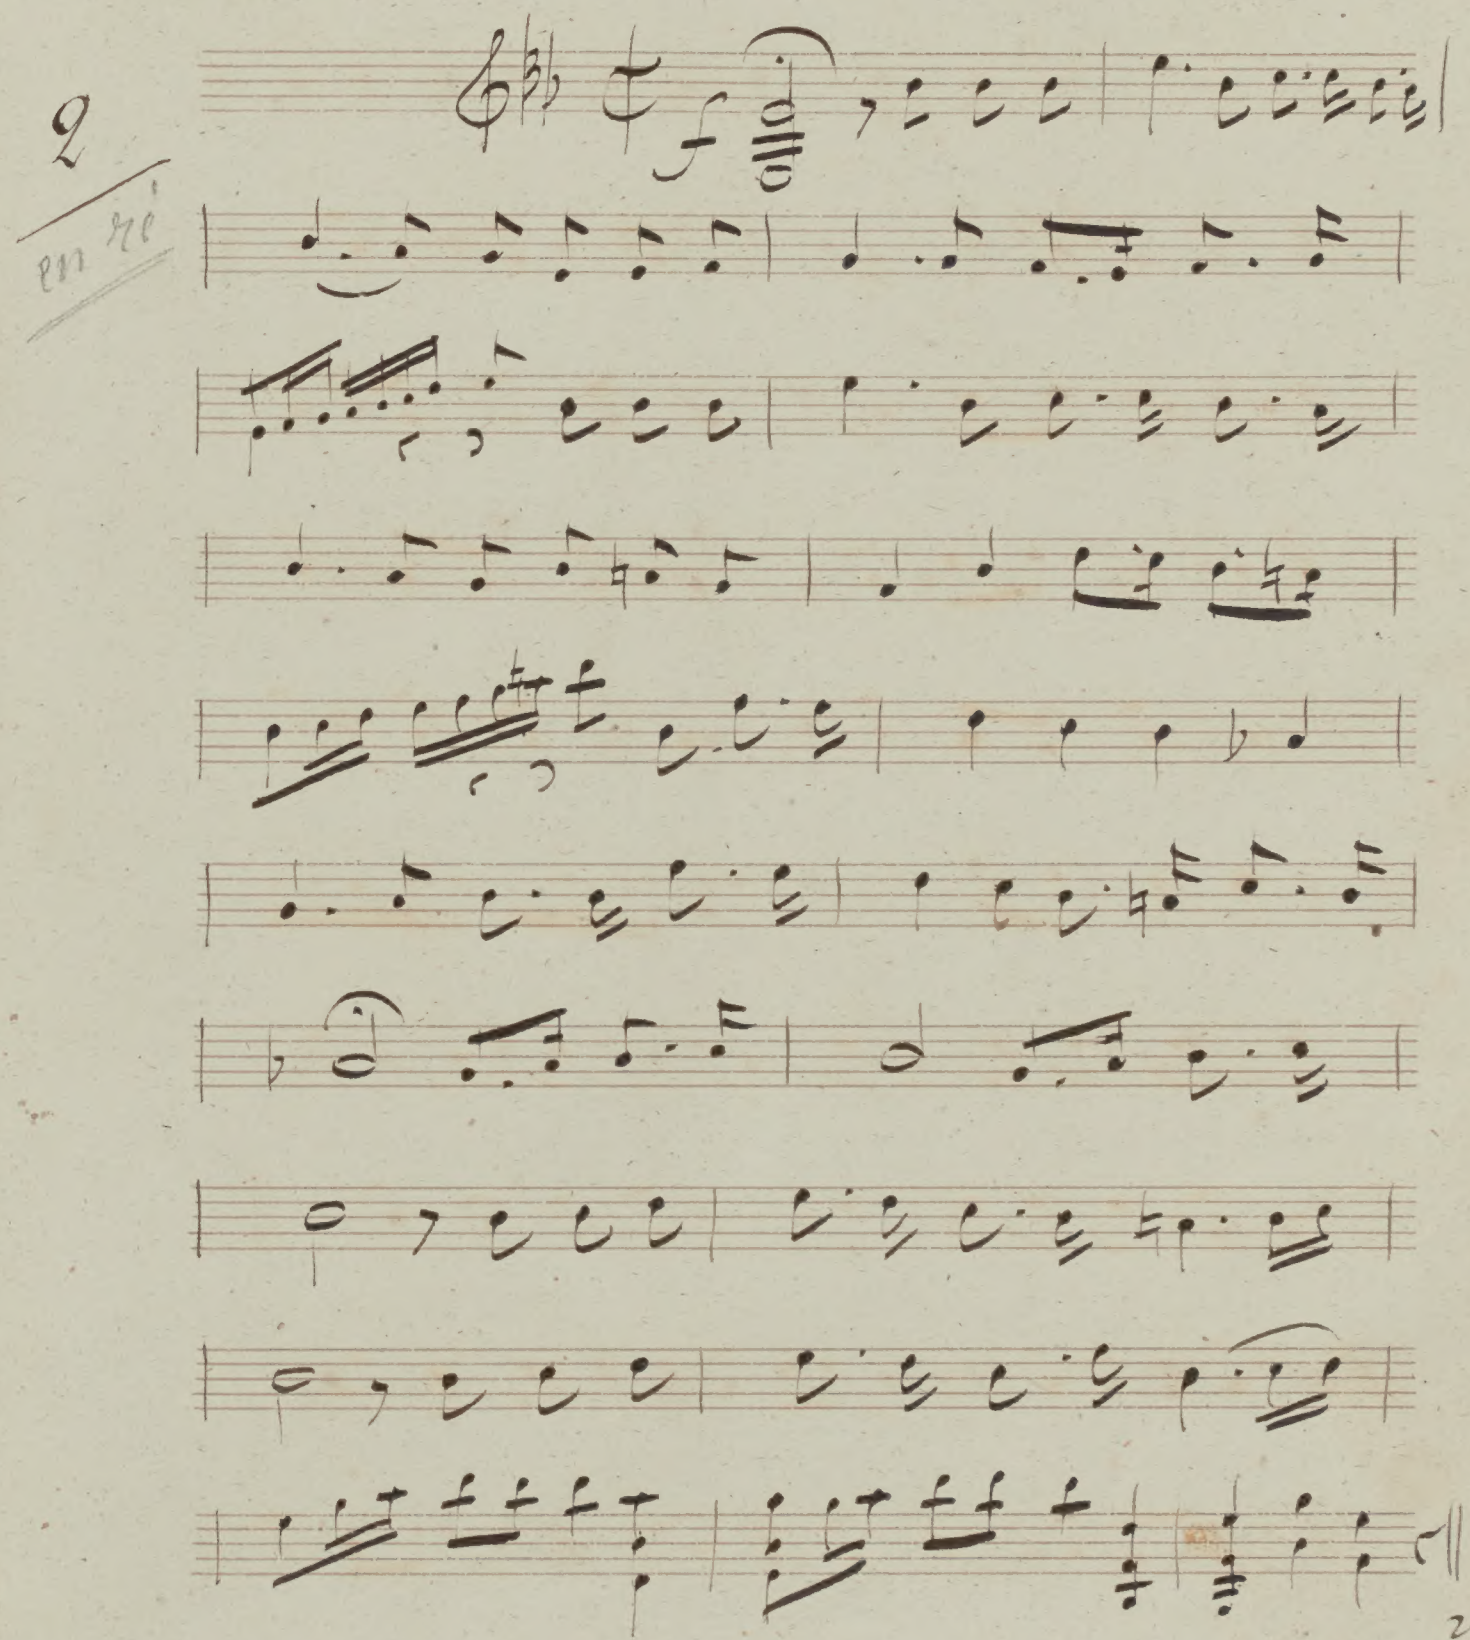 2
en ré
f
2